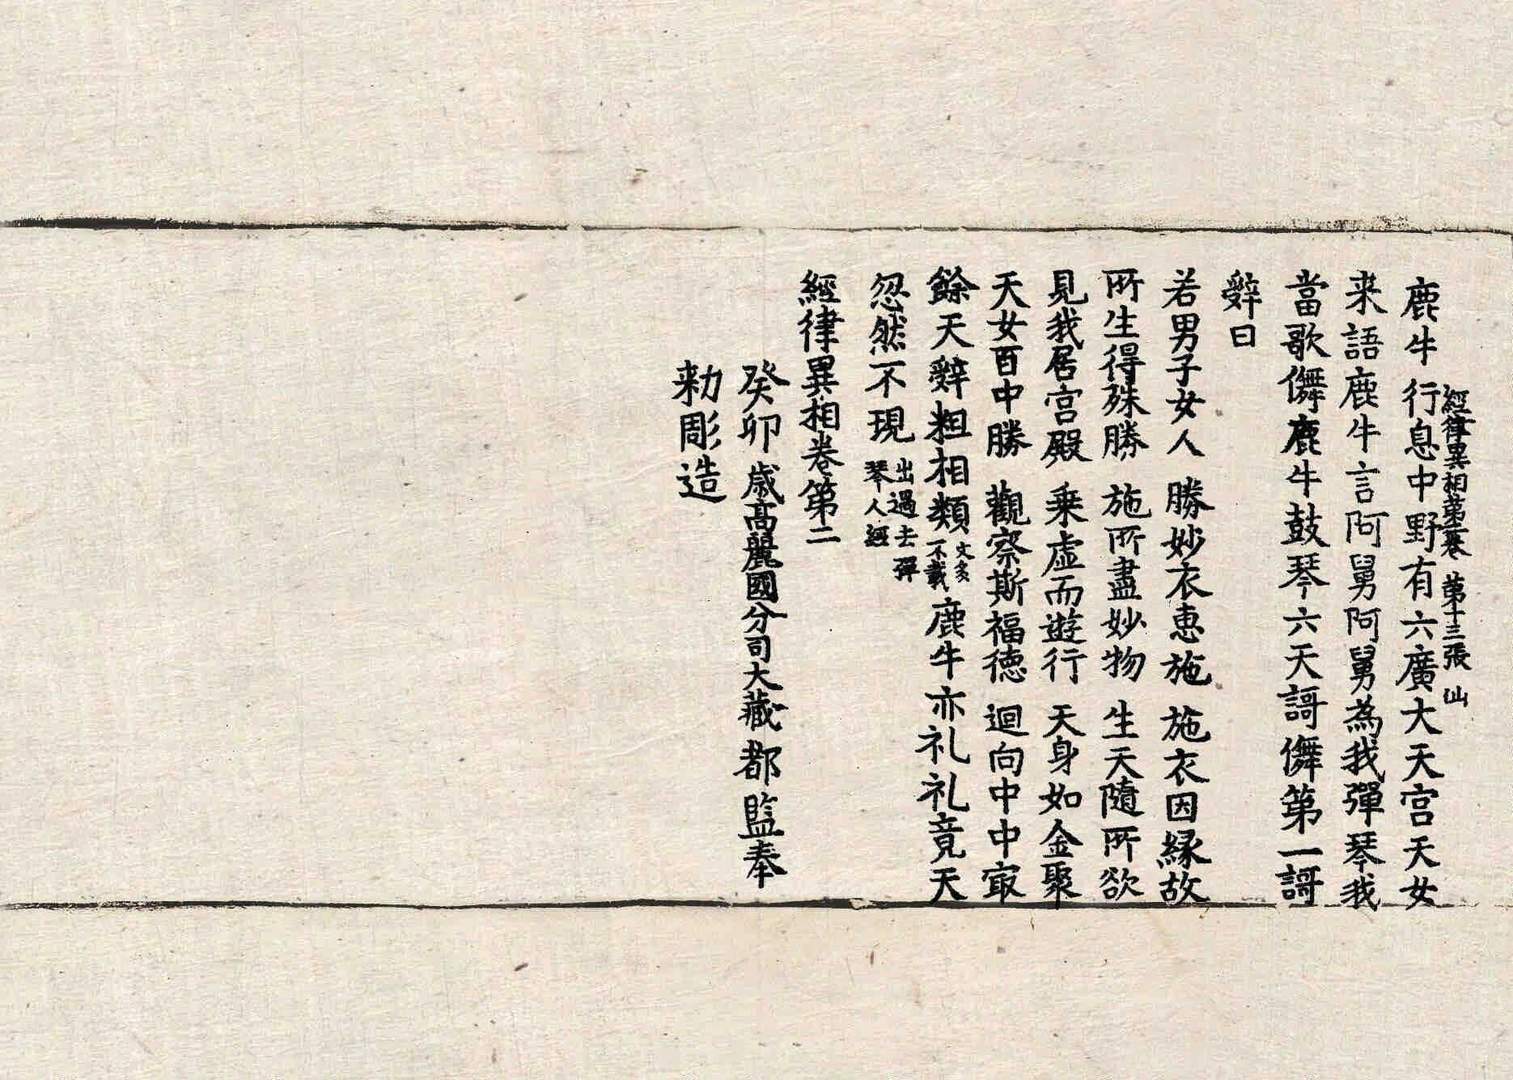 經律異相第二卷 第十三張 仙
鹿牛行息中野有六廣大天宮天女
来語鹿牛言阿舅阿舅為我彈琴我
當歌儛鹿牛鼓琴六天謌儛第一謌
辤曰
若男子女人 勝妙衣恵施 施衣因縁故
所生得殊勝 施所盡妙物 生天隨所欲
見我居宮殿 乗虚而遊行 天身如金聚
天女百中勝 觀察斯福德 迴向中中㝡
餘天辤粗相類文多不載鹿牛亦礼礼竟天
忽然不現出過去彈琴人經
經律異相卷第二
癸卯歳高麗國分司大藏都監奉
勑彫造